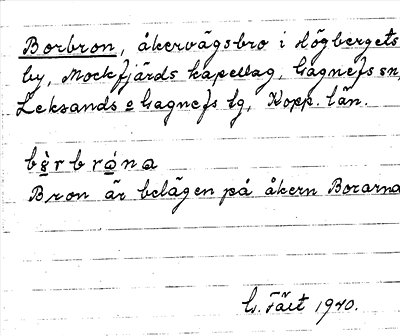 Borbron, åkervägsbro i Högbergets
by, Mockfjärds kapellag, Gagnefs sn,
Leksands o Gagnefs tg, Kopp. län.
Bron är belägen på åkern Borarna
G. Täet 1940.